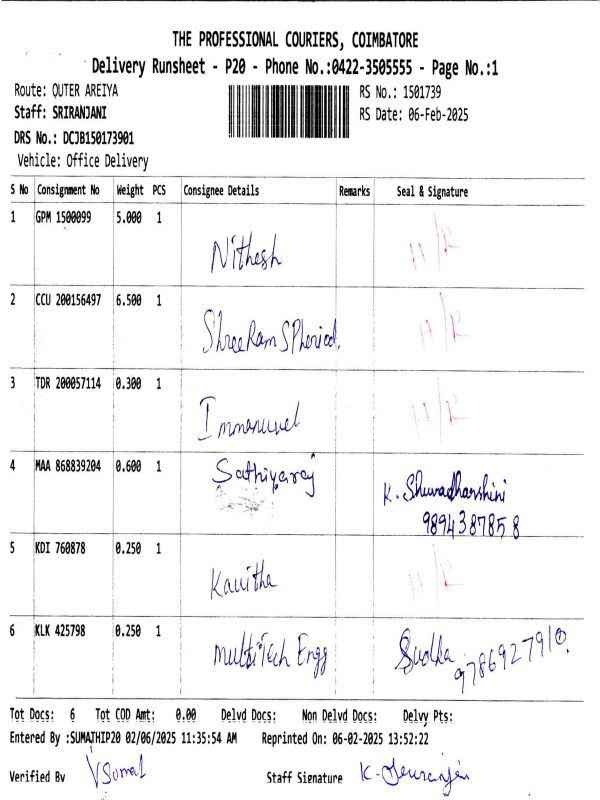 THE PROFESSIONAL COURIERS, COIMBATORE
Delivery Runsheet - P20 - Phone No.:0422-3505555 - Page No.:1
Route: QUTER AREIYA
RS No.: 1501739
Staff: SRIRANJANI
RS Date: 06-Feb-2025
DRS No.: DCJB150173901
Vehicle: Office Delivery
S No Consignment No Weight PCS Consignee Details Remarks Seal & Signature
1 GPM 1500099 5.000 1 Nithesh H/R
2 CCU 200156497 6.500 1 ShreeRam H/R
3 TDR 200057114 0.300 1 Immanuvel H/R
4 MAA 868839204 0.600 1 Sathiyaraj K. Shuvadharshini
9894387858
5 KDI 760878 0.250 1 Kavitha H/R
6 KLK 425798 0.250 1 MultiTech Engg Sudha
9786927910.
Tot Docs: 6 Tot COD Amt: 0.00 Delvd Docs: Non Delvd Docs: Delvy Pts:
Entered By :SUMATHIP20 02/06/2025 11:35:54 AM Reprinted On: 06-02-2025 13:52:22
Verified By Staff Signature